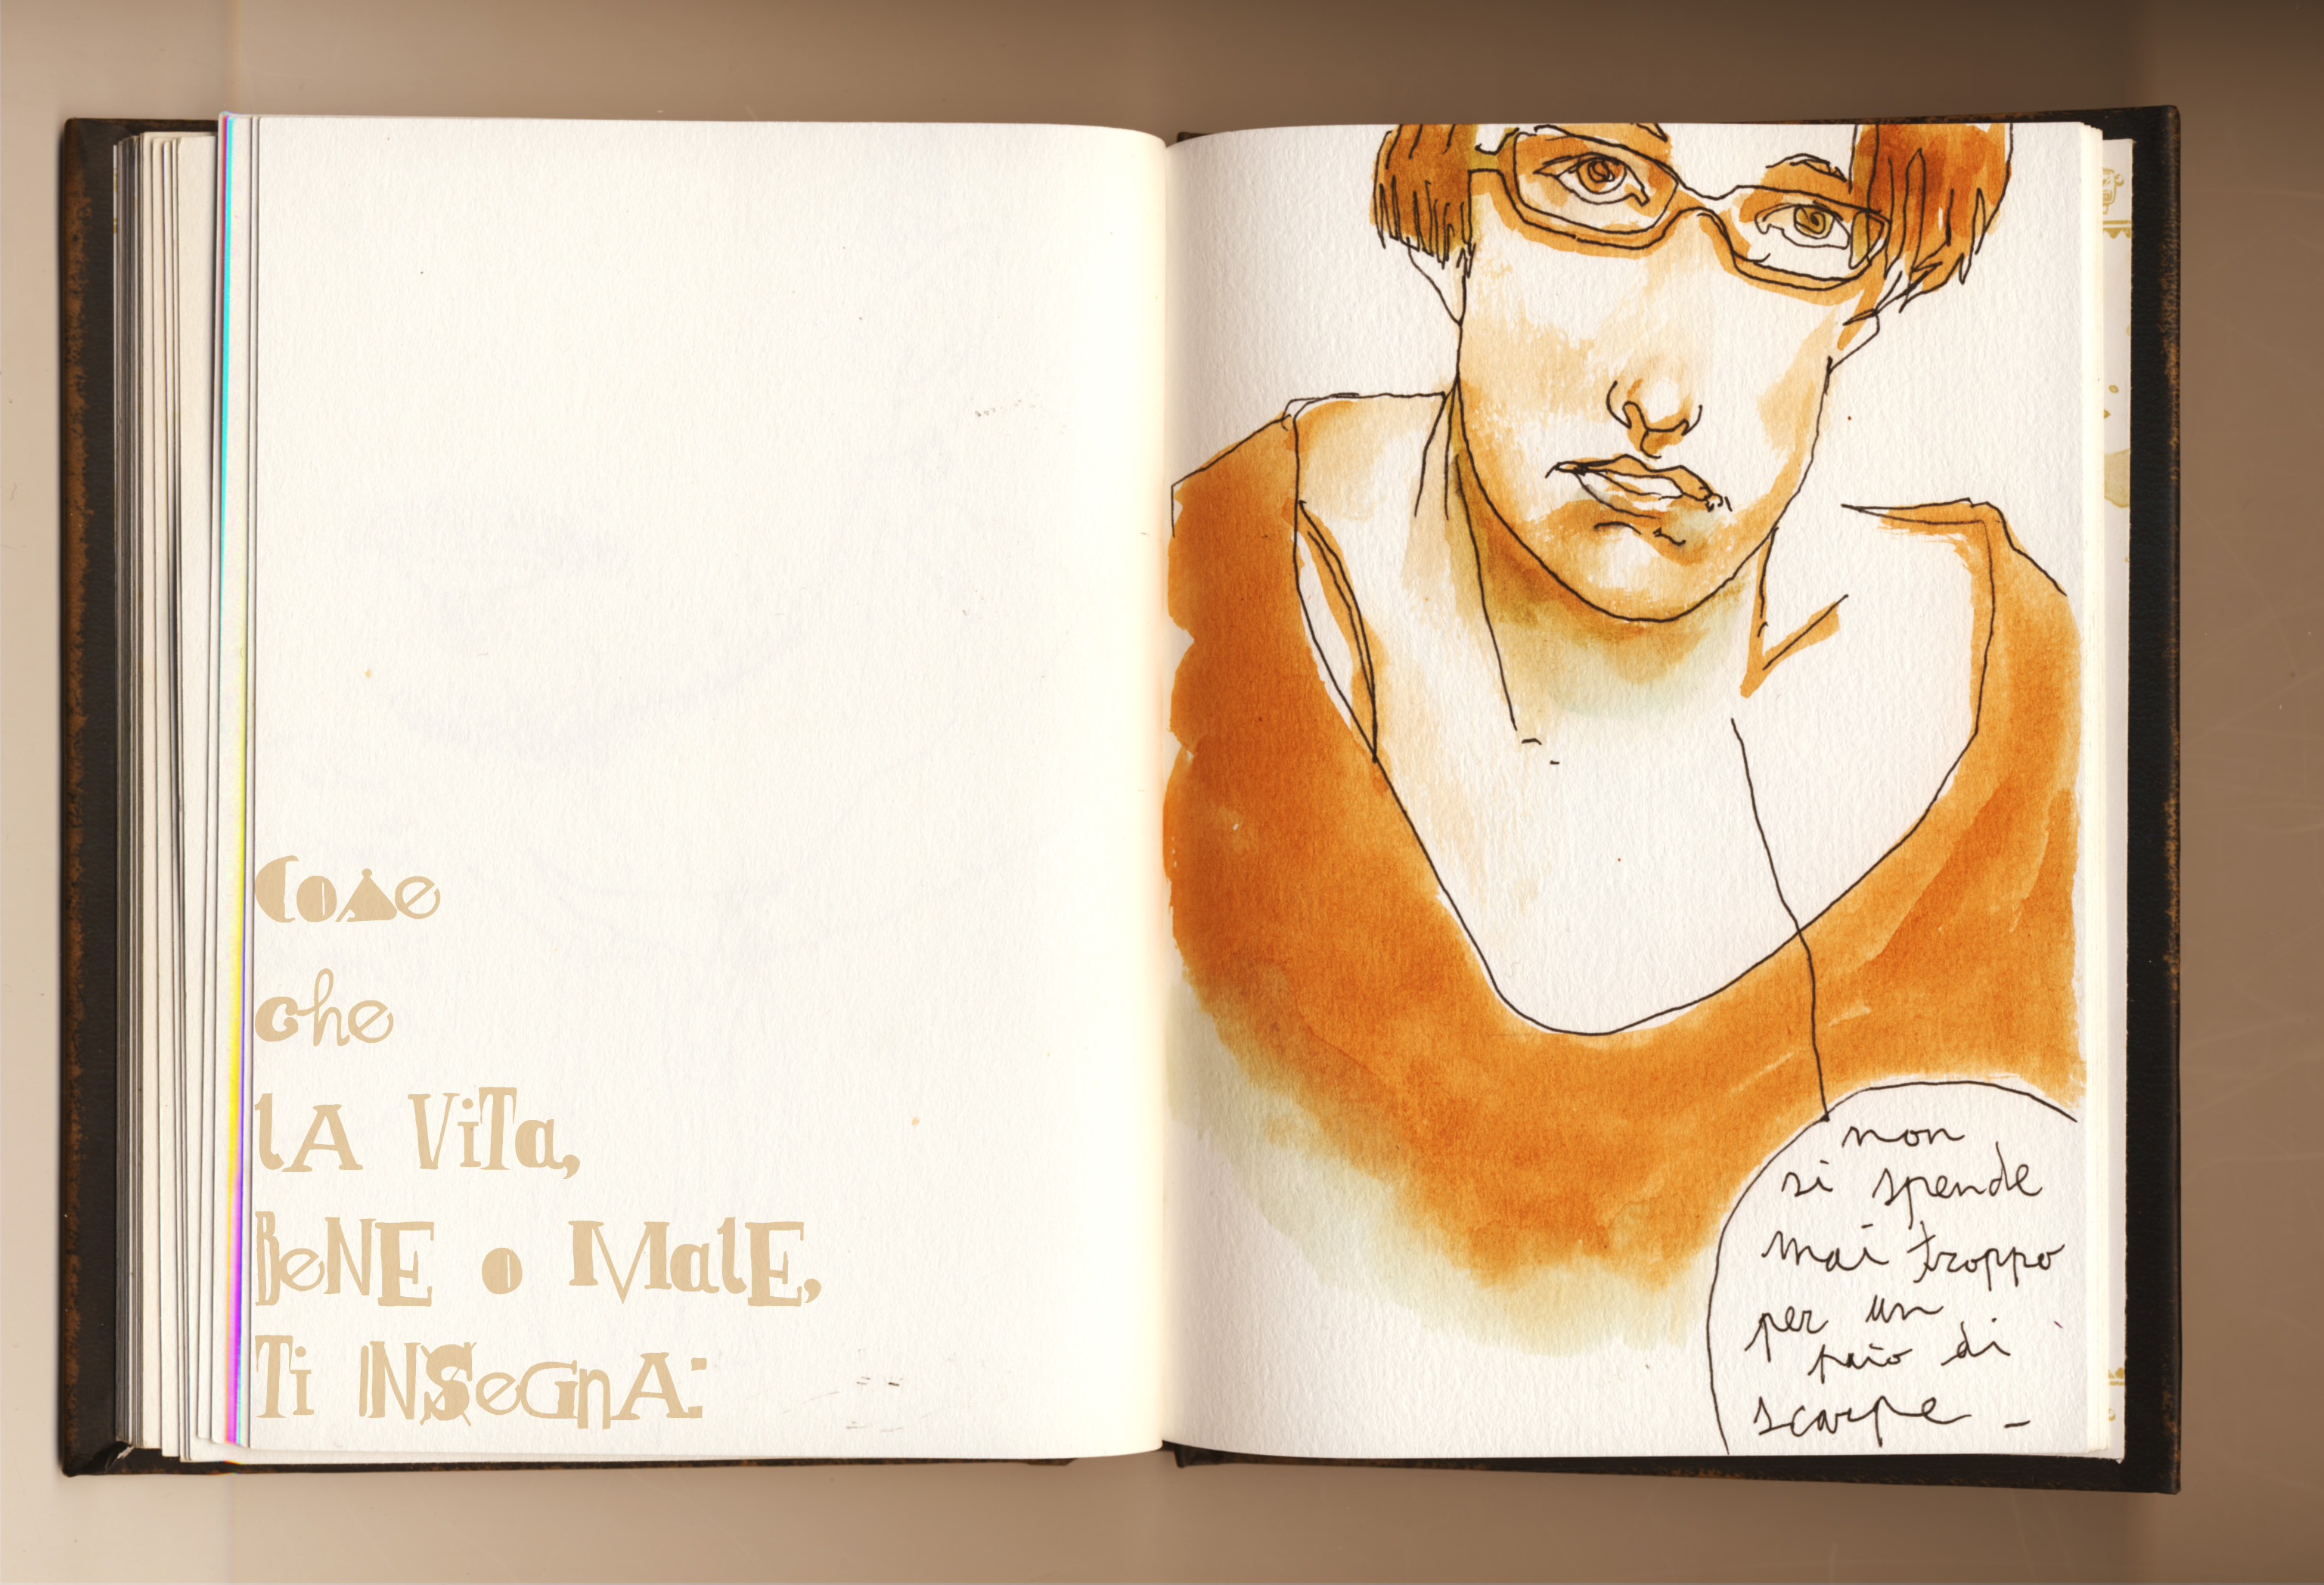 CoSe
che
lA ViTa,
BeNE o MalE,
Ti INSeGnA:
non
si spende
mai troppo
per un
paio di
scarpe -